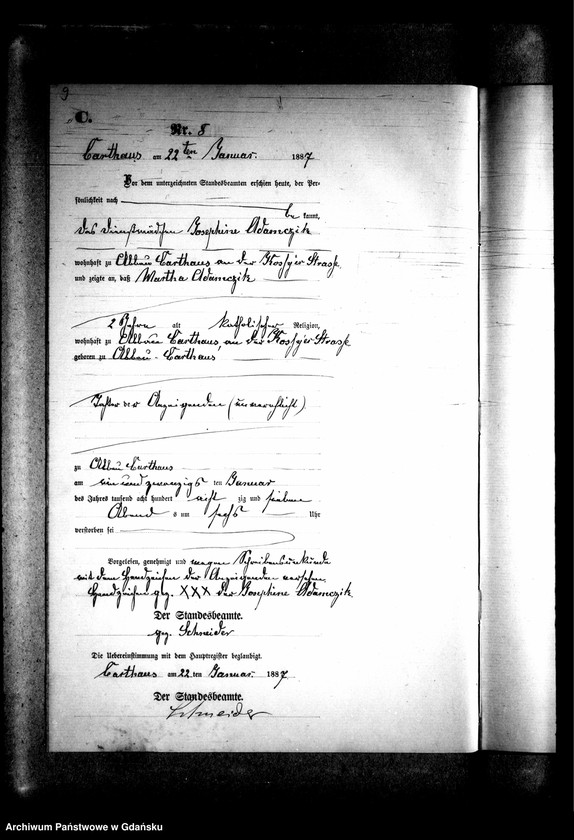 9
C.
Nr. 8
Carthaus am 22ten Januar. 1887
Vor dem unterzeichneten Standesbeamten erschien heute, der Per-
sönlichkeit nach
be kannt,
das Dienstmädchen Josephine Adamczik
wohnhaft zu Abbau Carthaus an der Strasse,
und zeigte an, daß Martha Adamczik
2 Jahre alt katholischer Religion,
wohnhaft zu Abbau Carthaus, an der Strasse
geboren zu Abbau - Carthaus
Tochter der Anzeigenden (unverehelicht)
zu Abbau Carthaus
am ein und zwanzigs ten Januar
des Jahres tausend acht hundert acht zig und sieben
Abend s um sechs Uhr
verstorben sei
Vorgelesen, genehmigt und wegen Schreibensunkunde
mit dem Handzeichen der Anzeigenden versehen
Handzeichen gez. XXX der Josephine Adamczik.
Der Standesbeamte.
gez. Schneider
Die Uebereinstimmung mit dem Hauptregister beglaubigt.
Carthaus am 22. ten Januar. 1887
Der Standesbeamte.
Schneider
Archiwum Państwowe w Gdańsku